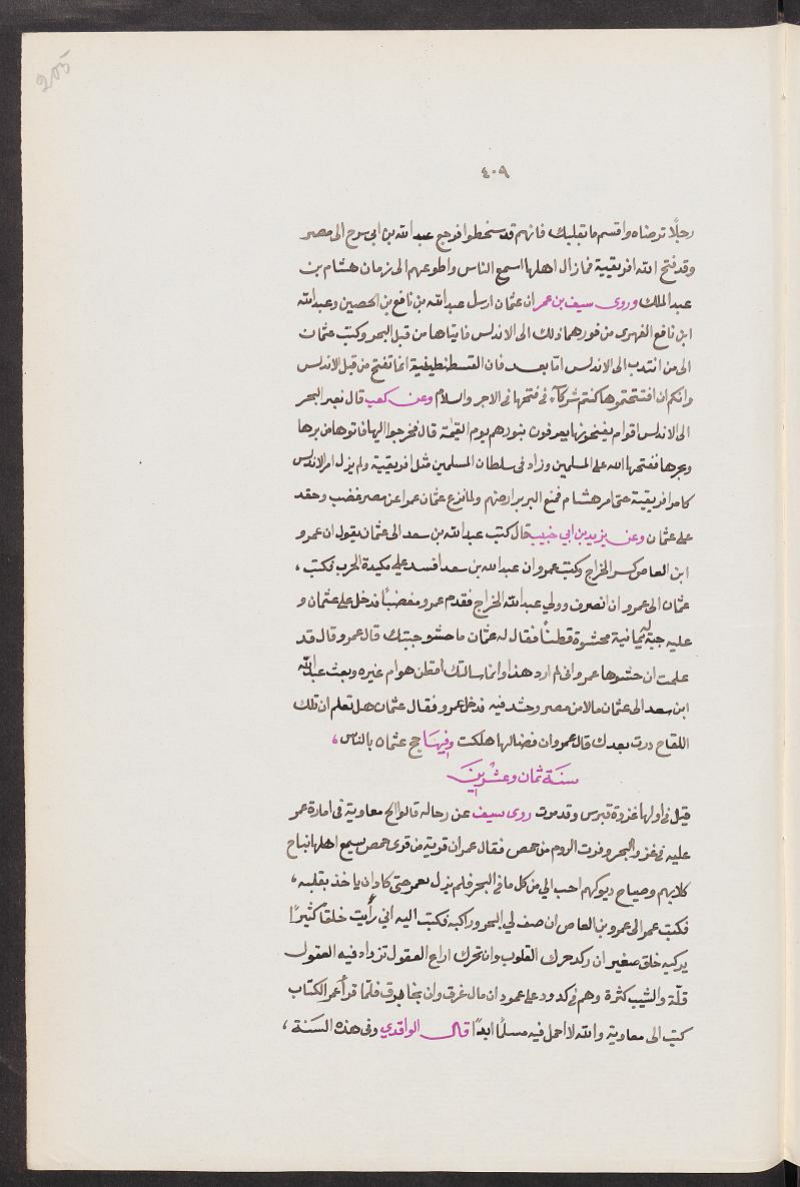 205
٤٠٩
رجلًا ترضاه واقسم ما تقبلك فانهم قد سخطوا فرجع عبد الله بن ابي سرح الى مصر
وقد فتح الله افريقية فما زال اهلها اسمع الناس واطوعهم الى زمان هشام بن
عبد الملك وروى سيف بن عمر ان عثمان ارسل عبد الله بن نافع بن الحصين وعبد الله
ابن نافع الفهري من فورهما ذلك الى الاندلس فاتياها من قبل البحر وكتب عثمان
الى من انتدب الى الاندلس اما بعد فان القسطنطينية انما تفتح من قبل الاندلس
وانكم ان افتتحتموها كنتم شركاء في فتحها في الاجر والسلام وعن كعب قال نعبر البحر
الى الاندلس اقوام يفتحونها يعرفون بنورهم يوم القيمة قال فخرجوا اليها فاتوها من برها
وبحرها ففتحها الله على المسلمين وزاد في سلطان المسلمين مثل افريقية ولم يزل امر الاندلس
كامر افريقية حتى امر هشام فمنع البربر ارضهم ولما نزع عثمان عمرا عن مصر غضب وحقد
على عثمان وعن يزيد بن ابي حبيب قال كتب عبد الله بن سعد الى عثمان يقول ان عمرو
ابن العاص كسر الخراج وكتب عمرو ان عبد الله بن سعد افسد علي مكيدة الحرب فكتب ،
عثمان الى عمرو ان انصرف وولي عبد الله الخراج فقدم عمرو مغضبًا فدخل على عثمان و
عليه جبة له يمانية محشوة قطنًا فقال له عثمان ما حشو جبتك قال عمرو قال قد
علمت ان حشوها عمرو اني لم ارد هذا وانما سالتك اقطن هو ام غيره وبعث عبد الله
ابن سعد الى عثمان مالا من مصر وحشد فيه فدخل عمرو فقال عثمان هل تعلم ان تلك
اللقاح درت بعدك قال عمرو ان فصالها هلكت وفيها حج عثمان بالناس ،
سنة ثمان وعشرين
قيل في اولها غزوة قبرس وقد مرت روى سيف عن رجاله قالوا الح معاوية في امارة عمر
عليه في غزو البحر وقرب الروم من حمص فقال عمر ان قرية من قرى حمص يسمع اهلها نباح
كلابهم وصياح ديوكهم احب الي من كل ما في البحر فلم يزل بعمر حتى كاد ان ياخذ بقلبه ،
فكتب عمر الى عمرو بن العاص ان صف لي البحر وراكبه فكتب اليه اني رأيت خلقًا كثيرًا
يركبه خلق صغير ان ركد حرك القلوب وان تحرك اراع العقول تزداد فيه العقول
قلة والشيب كثرة وهم في كدود على عمود ان مال غرق وان نجا برق فلما قرأ عمر الكتاب
كتب الى معاوية والله لا احمل فيه مسلمًا ابدًا قال الواقدي وفى هذه السنة ،